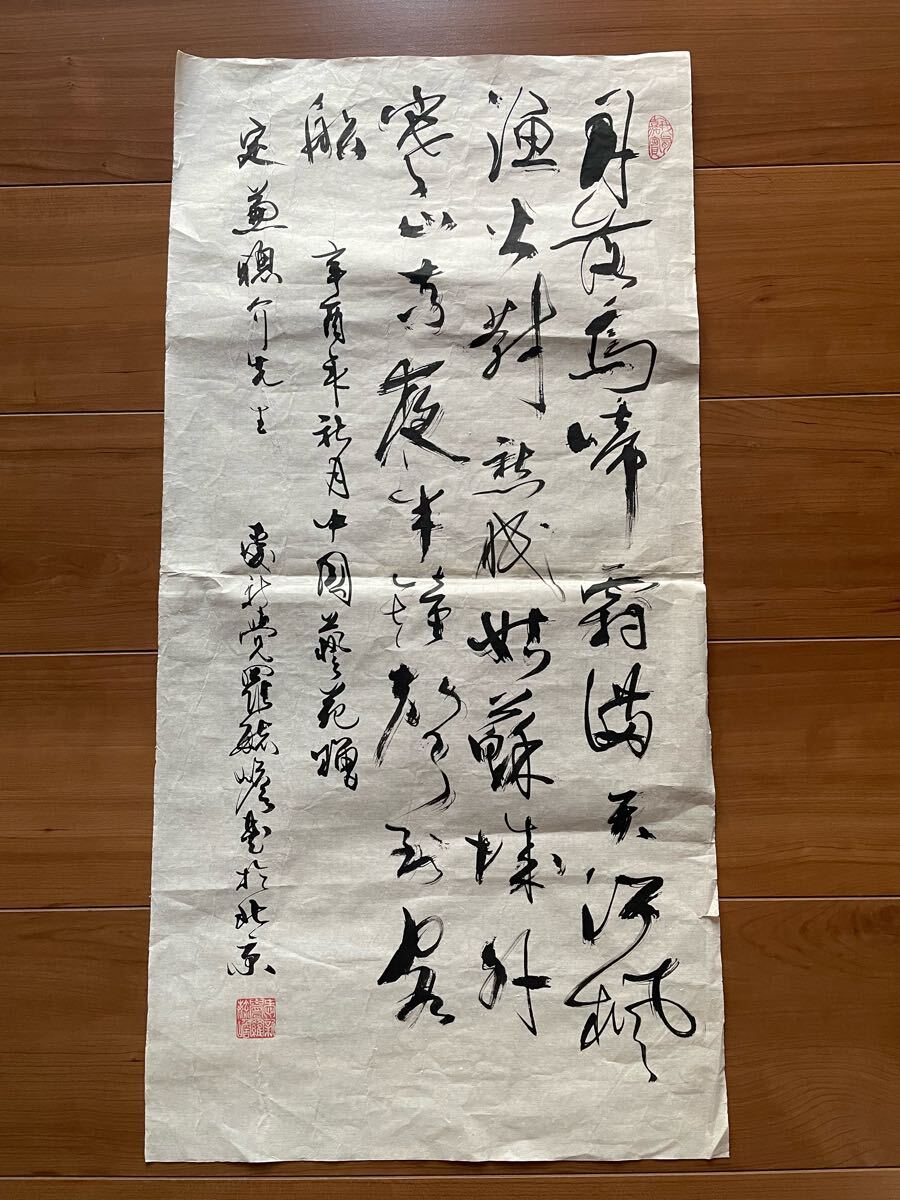 月落烏啼霜滿天江楓
漁火對愁眠姑蘇城外
寒山寺夜半鐘聲到客
船 辛酉年秋月中國藝苑贈
定兼聰介先生 愛新覚羅毓嶦書於北京